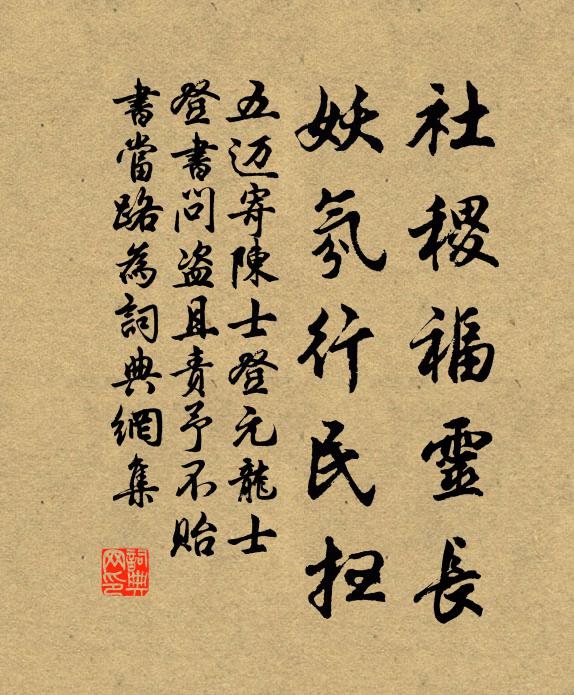 社稷福靈長
妖氛行民抂
五迈寄陳士登元龍士
登書問盗且責予不貽
書當路為詞典網集
詞典網印